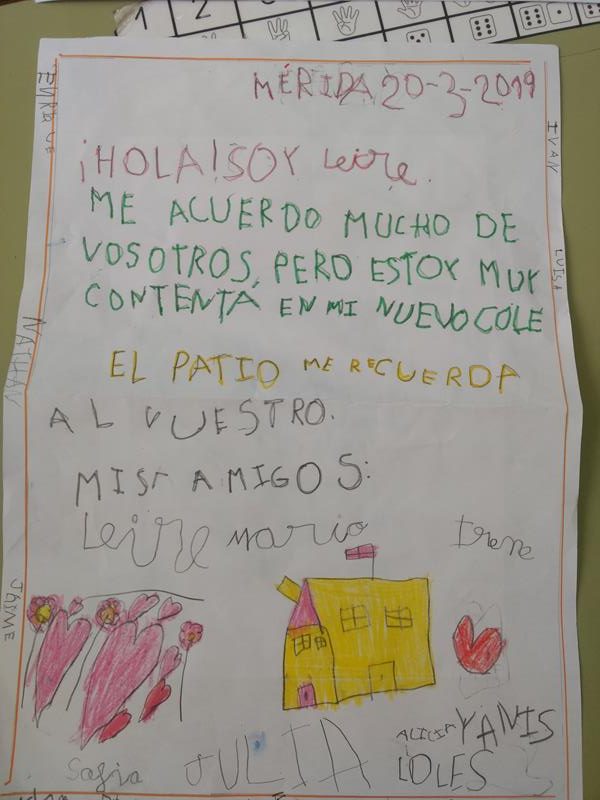 1 2
MÉRIDA 20-3-2019
¡HOLA! SOY Leire.
ME ACUERDO MUCHO DE
VOSOTROS, PERO ESTOY MUY
CONTENTA EN MI NUEVO COLE
EL PATIO ME RECUERDA
AL VUESTRO.
MIS AMIGOS:
Leire Mario Irene
ENRIQUE
NATHAN
JAIME
IVAN
LUISA
Sofia JULIA ALICIA YANIS
LOLES